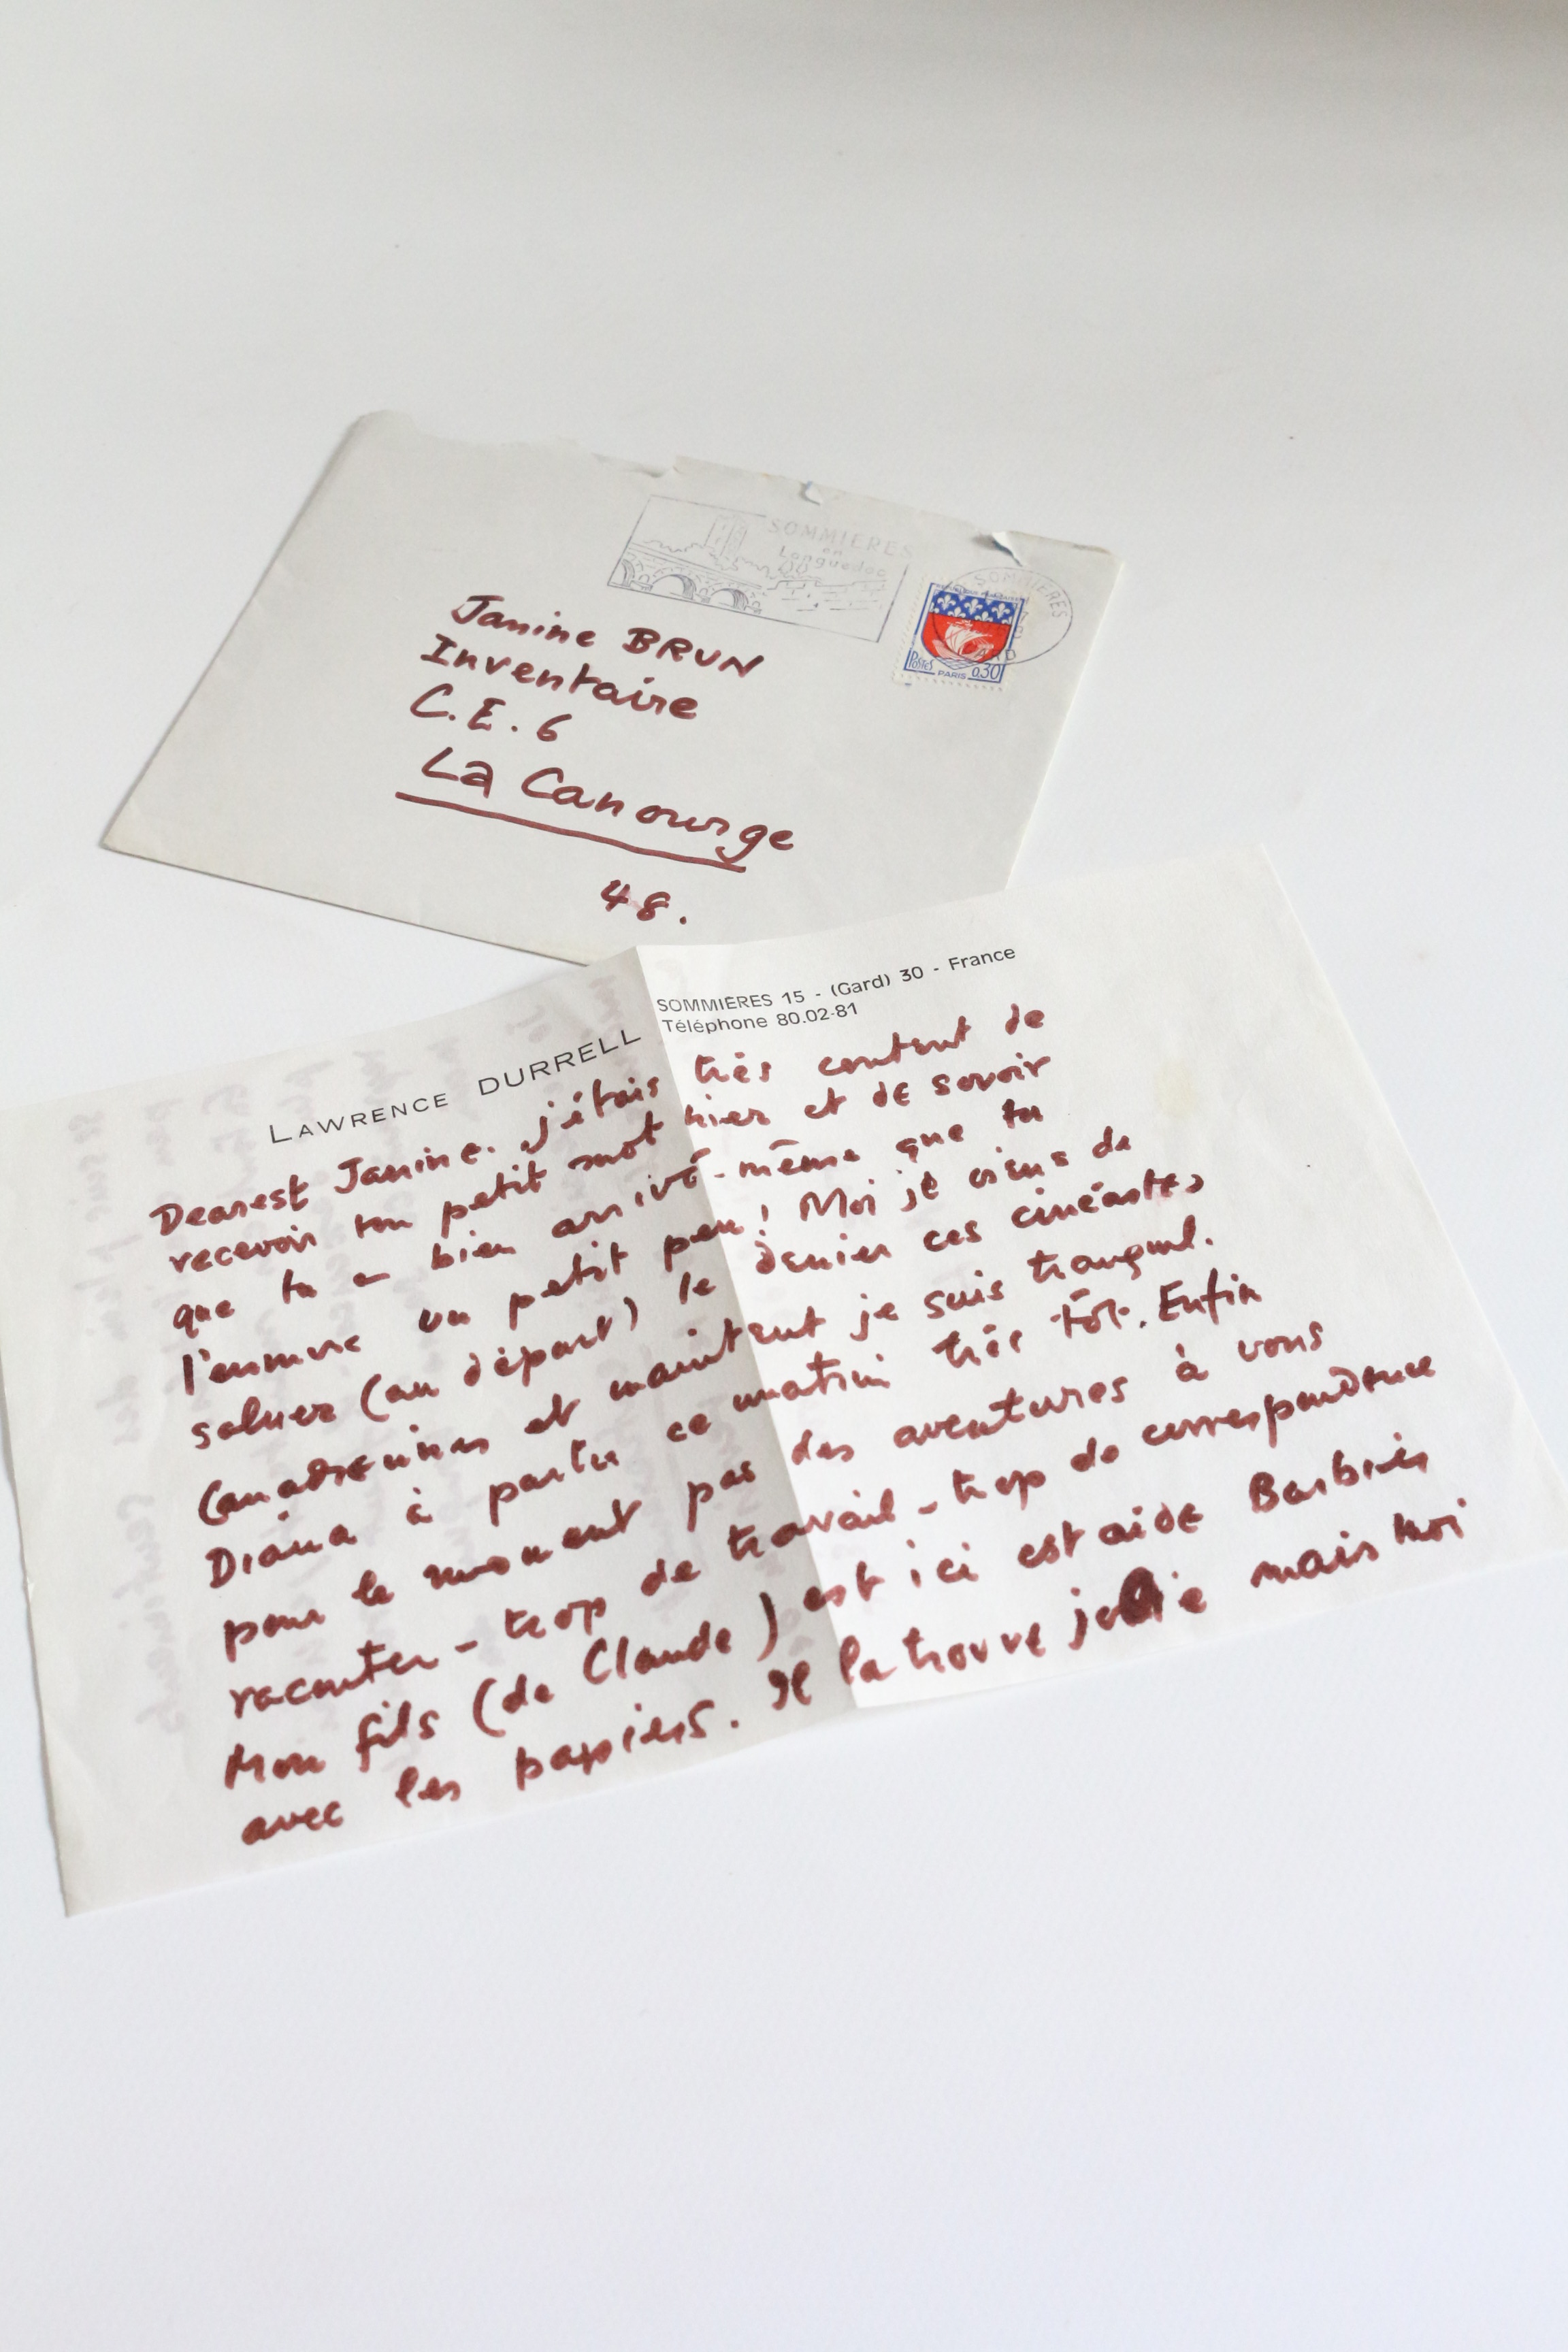 SOMMIERES
en
Languedoc
SOMMIERES
GARD
POSTES PARIS 0.30
Janine BRUN
Inventaire
C.E. 6
La Canourge
48.
LAWRENCE DURRELL
SOMMIÈRES 15 - (Gard) 30 - France
Téléphone 80.02-81
Dearest Janine. j'étais très content de
recevoir ton petit mot hier et de savoir
que tu bien arrivé - même que tu
un petit peu! Moi je viens de
saluer (au départ) le denier ces cinéastes
Canadiennes et maintent je suis tranquil.
Diana à partu ce matin très tôt. Enfin
pour le moment pas des aventures à vous
raconter - trop de travail - trop de correspondence
Mon fils (de Claude) est ici est aide Barbier
avec les papiers. Il la trouve jolie mais moi